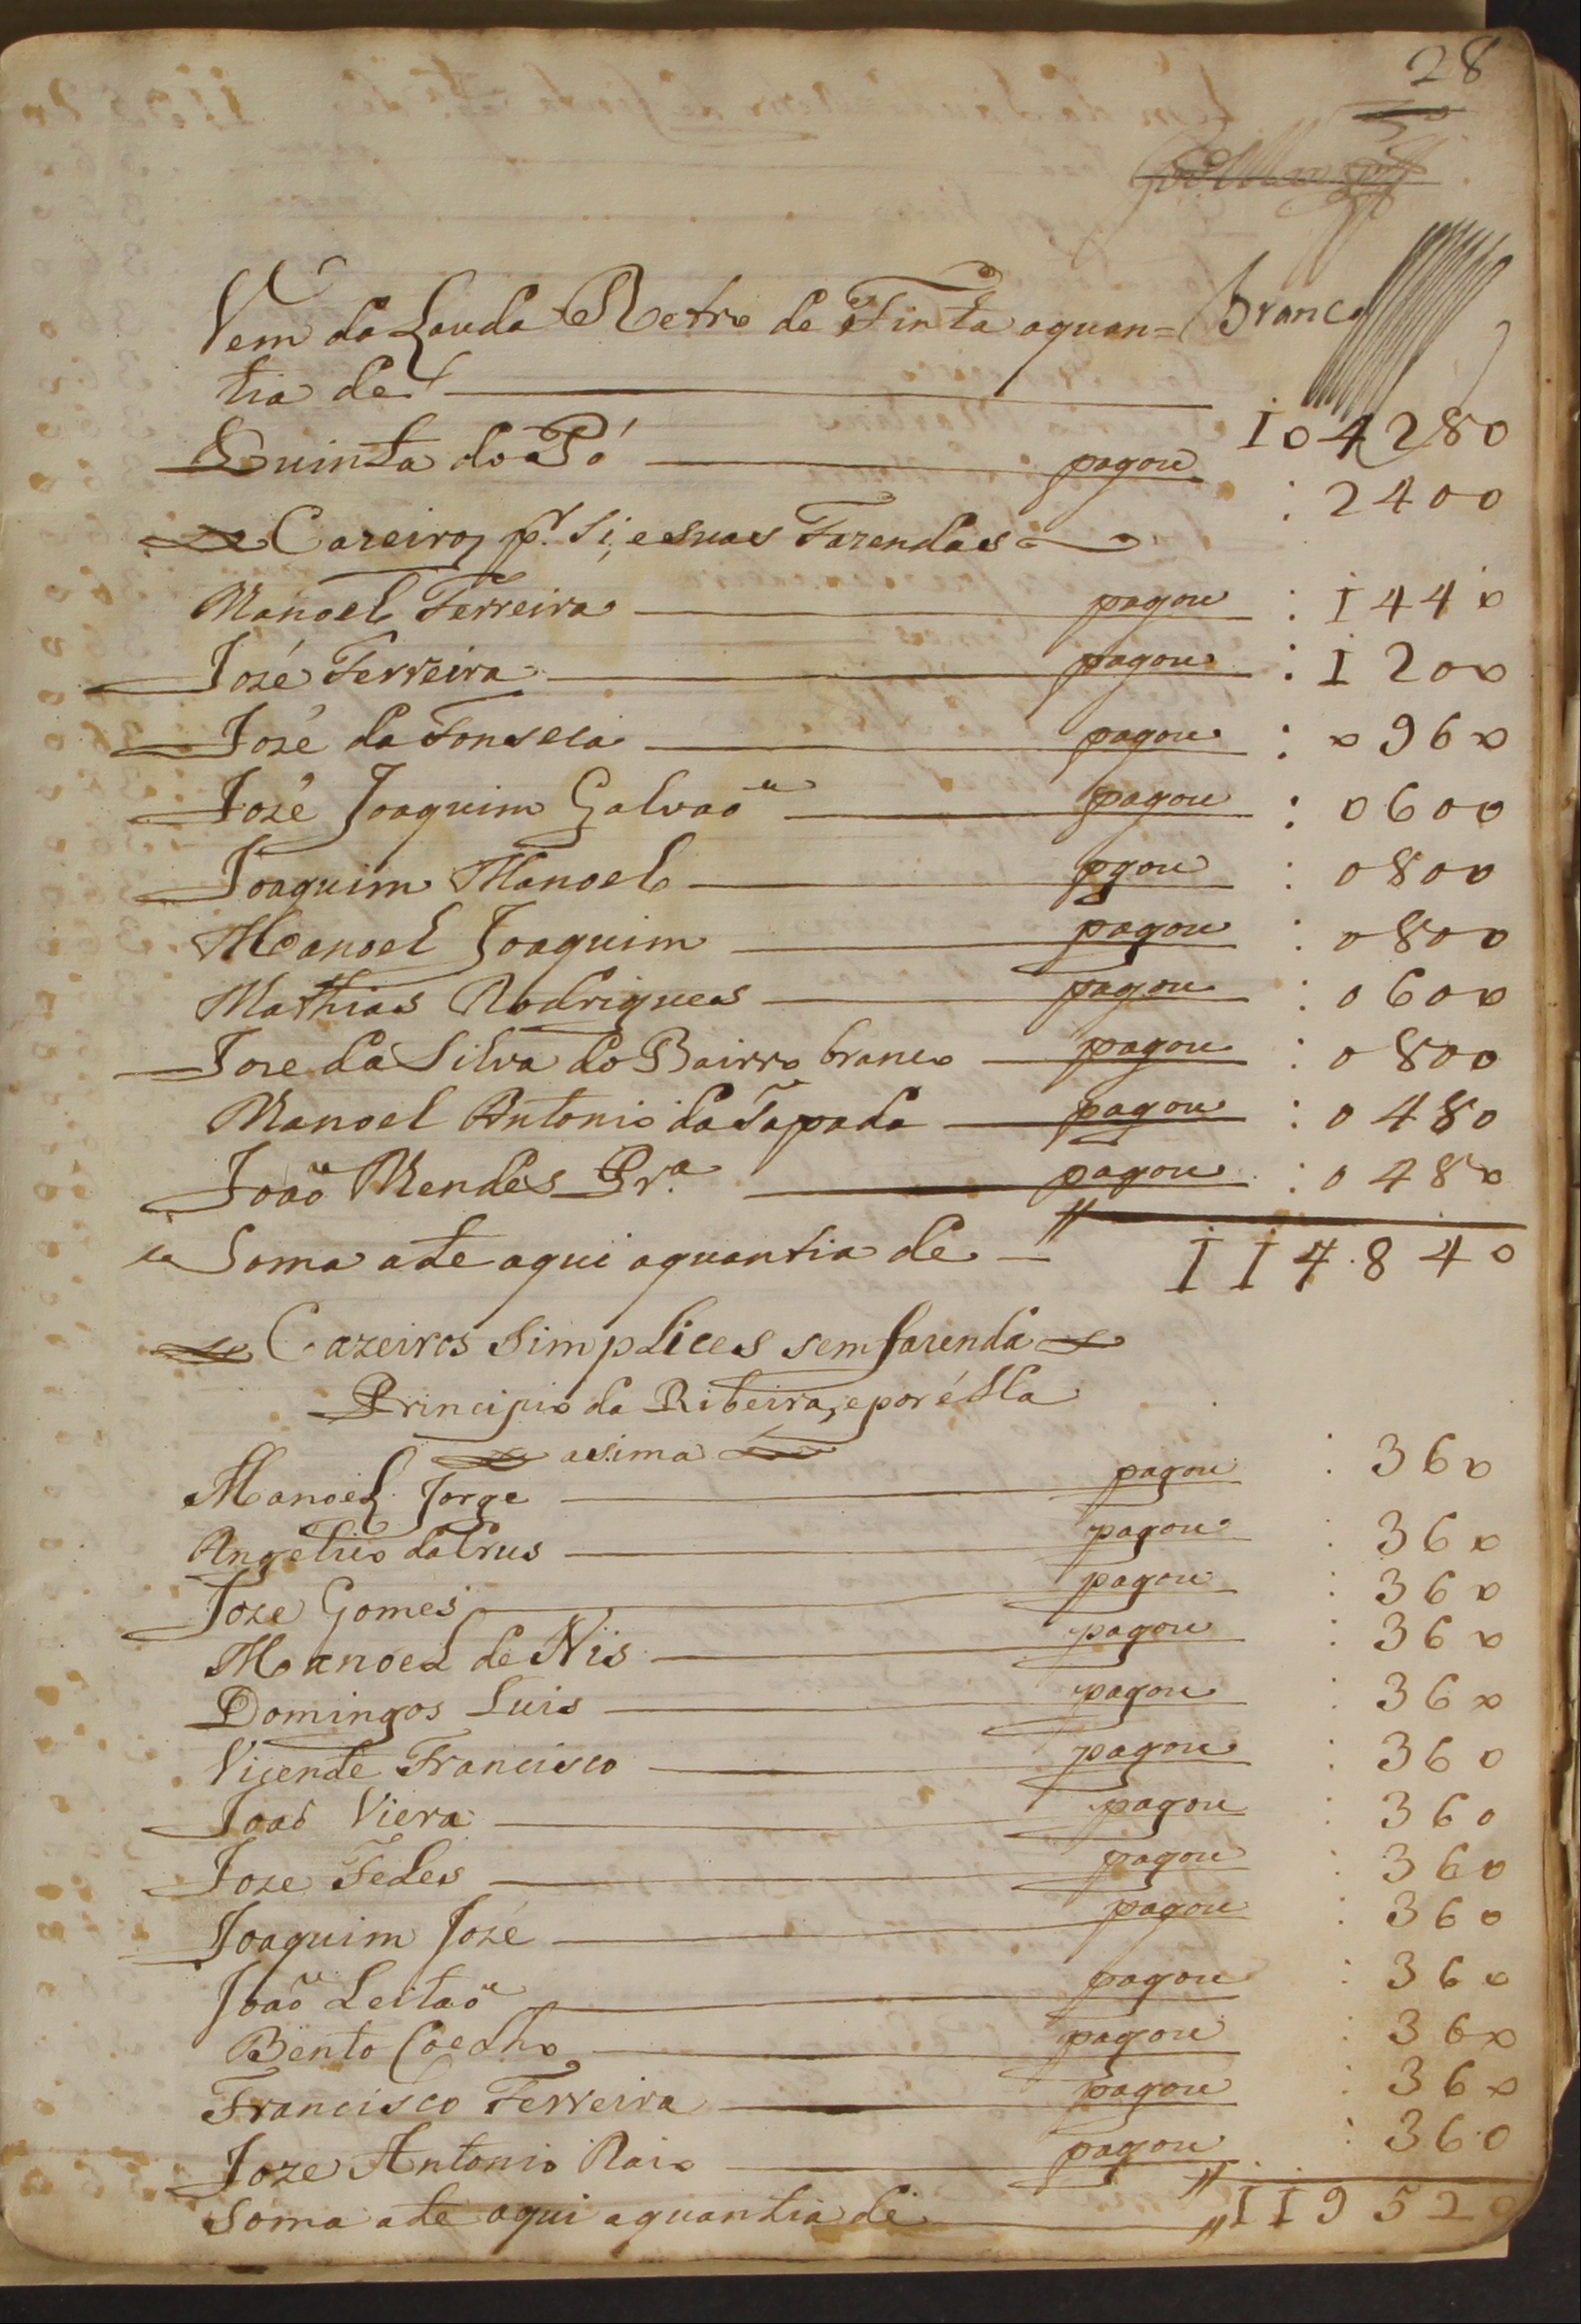 28
Vem da Lauda Retro de Finta aquan= Branco
tia de 104280
Quinta do Pó pagou : 2400
Cazeiros pr. Si, e suas Fazendas
Manoel Ferreira pagou : 1440
Jozé Ferreira pagou : 1200
Jozé da Fonseca pagou : 0960
Jozé Joaquim Galvaõ pagou : 0600
Joaquim Manoel pgou : 0800
Manoel Joaquim pagou : 0800
Mathias Rodrigues pagou : 0600
Joze da Silva do Bairro branco pagou : 0800
Manoel Antonio da Tapada pagou : 0480
Joaõ Mendes Pr.ª pagou : 0480
Soma ate aqui aquantia de 114.840
Cazeiros Simplices sem fazenda
Principio da Ribeira, e por élla
asima
Manoel Jorge pagou : 360
Angelico da Crus pagou : 360
Joze Gomes pagou : 360
Manoel de Nis pagou : 360
Domingos Luis pagou : 360
Vicente Francisco pagou : 360
Joaõ Viera pagou : 360
Joze Teles pagou : 360
Joaquim Jozé pagou : 360
Joaõ Leitaõ pagou : 360
Bento Coelho pagou : 360
Francisco Ferreira pagou : 360
Joze Antonio Raio pagou : 360
Soma ate aqui aquantia de 119520